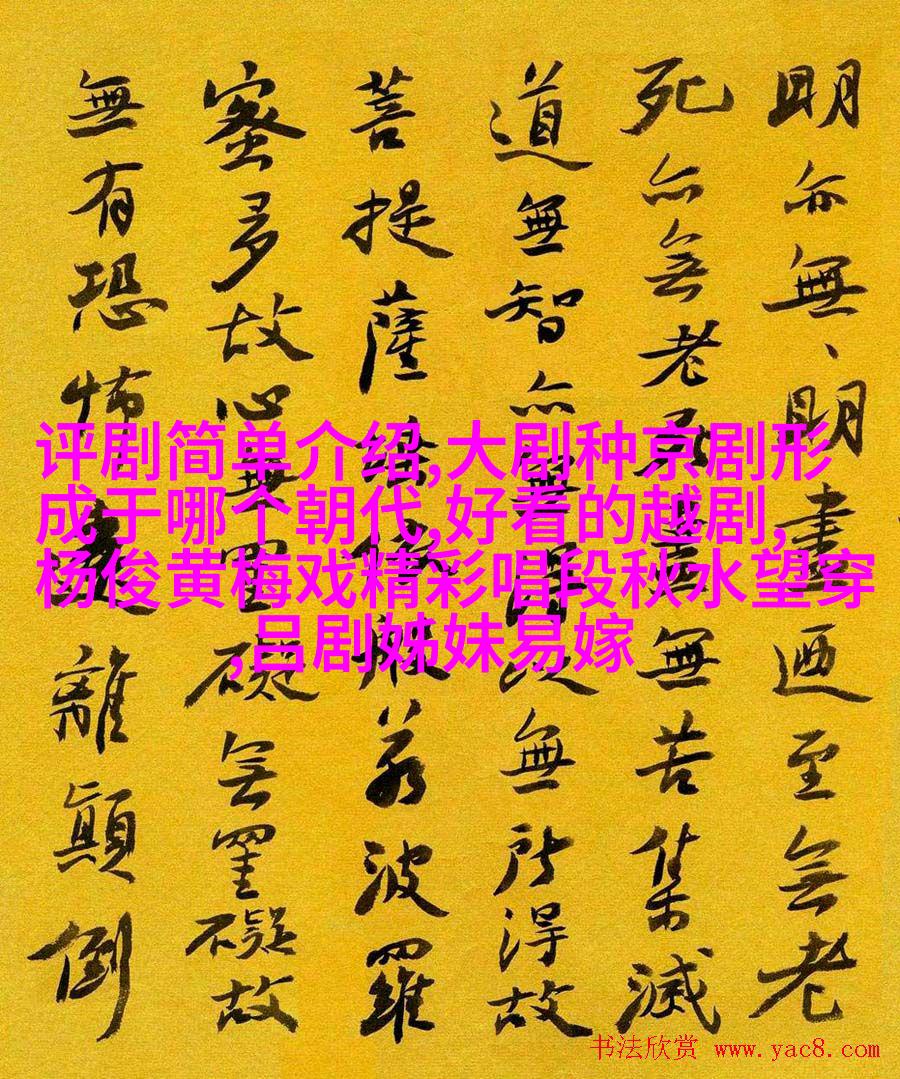 明亦無、明盡迺至無老
死亦無老死盡無苦集滅
道無智亦無得以無所得故
菩提薩埵依般若波羅
蜜多故心無罣礙無罣礙故
無有恐怖遠離顛倒
评剧简单介绍,大剧种京剧形
成于哪个朝代,好看的越剧,
杨俊黄梅戏精彩唱段秋水望穿
,吕剧姊妹易嫁
书法欣赏 www.yac8.com